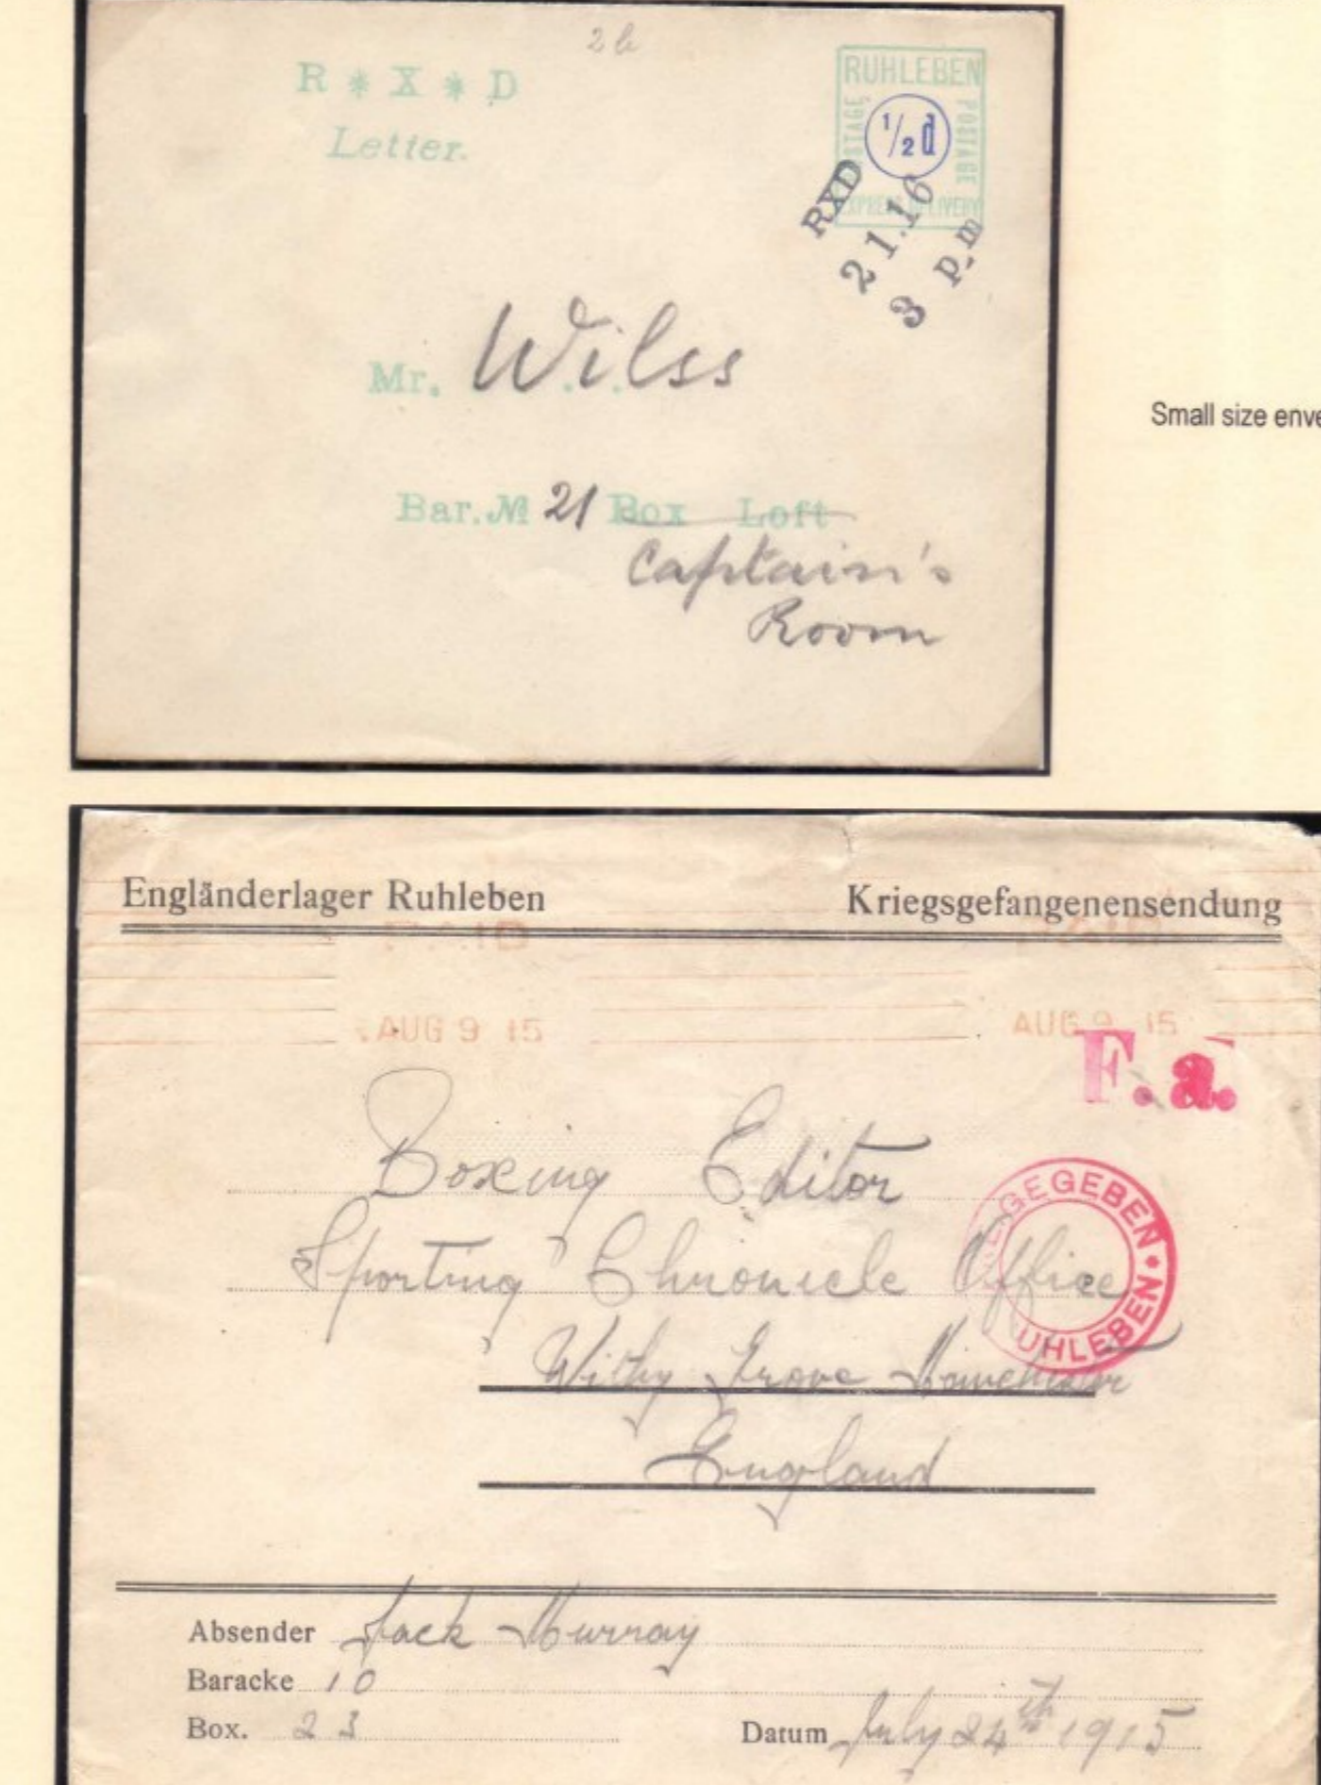 2 b
R * X * D
Letter.
RUHLEBEN
POSTAGE
POSTAGE
½d
EXPRESS DELIVERY
RXD
21.16
3 p.m
Mr. Wilss
Bar. № 21 Box Loft
Captain's
Room
Small size enve
Engländerlager Ruhleben
Kriegsgefangenensendung
PAID
PAID
AUG 9 15
AUG 9 15
F. a.
Boxing Editor
Sporting Chronicle Office
GEGEBEN • UHLEBEN
Withy Grove Manchester
England
Absender Jack Murray
Baracke 10
Box. 23
Datum July 24th 1915